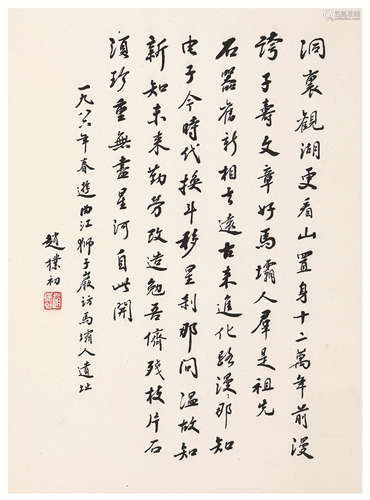 洞裏觀湖更看山置身十二萬年前漫
誇子壽文章好馬壩人羣是祖先
石器舊新相去遠古来進化路漫〻那知
电子今時代换斗移星刹那间温故知
新知未来勤劳改造勉吾儕残枝片石
須珍重無盡星河自此開
一九八六年春遊曲江獅子巖访馬壩人遺址
趙樸初